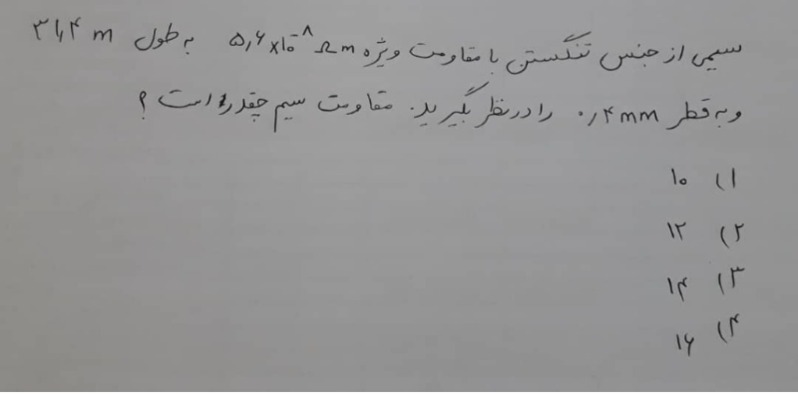 سیمی از جنس تنگستن با مقاومت ویژه ۵٫۶×۱۰⁻۸ Ωm به طول ۳۱٫۴ m
و به قطر ۰٫۴ mm را در نظر بگیرید. مقاومت سیم چقدر است ؟
۱) ۱۰
۲) ۱۲
۳) ۱۴
۴) ۱۶